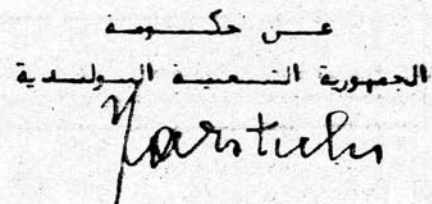 عن حكومة
الجمهورية الشعبية البولندية